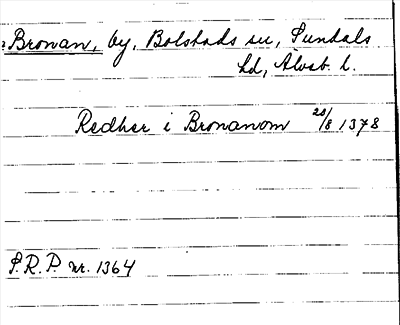 Bronan, by, Bolstads sn, Sundals
hd, Älvsb. l.
Redher i Bronanom 28/8 1378
S.R.P. nr. 1364